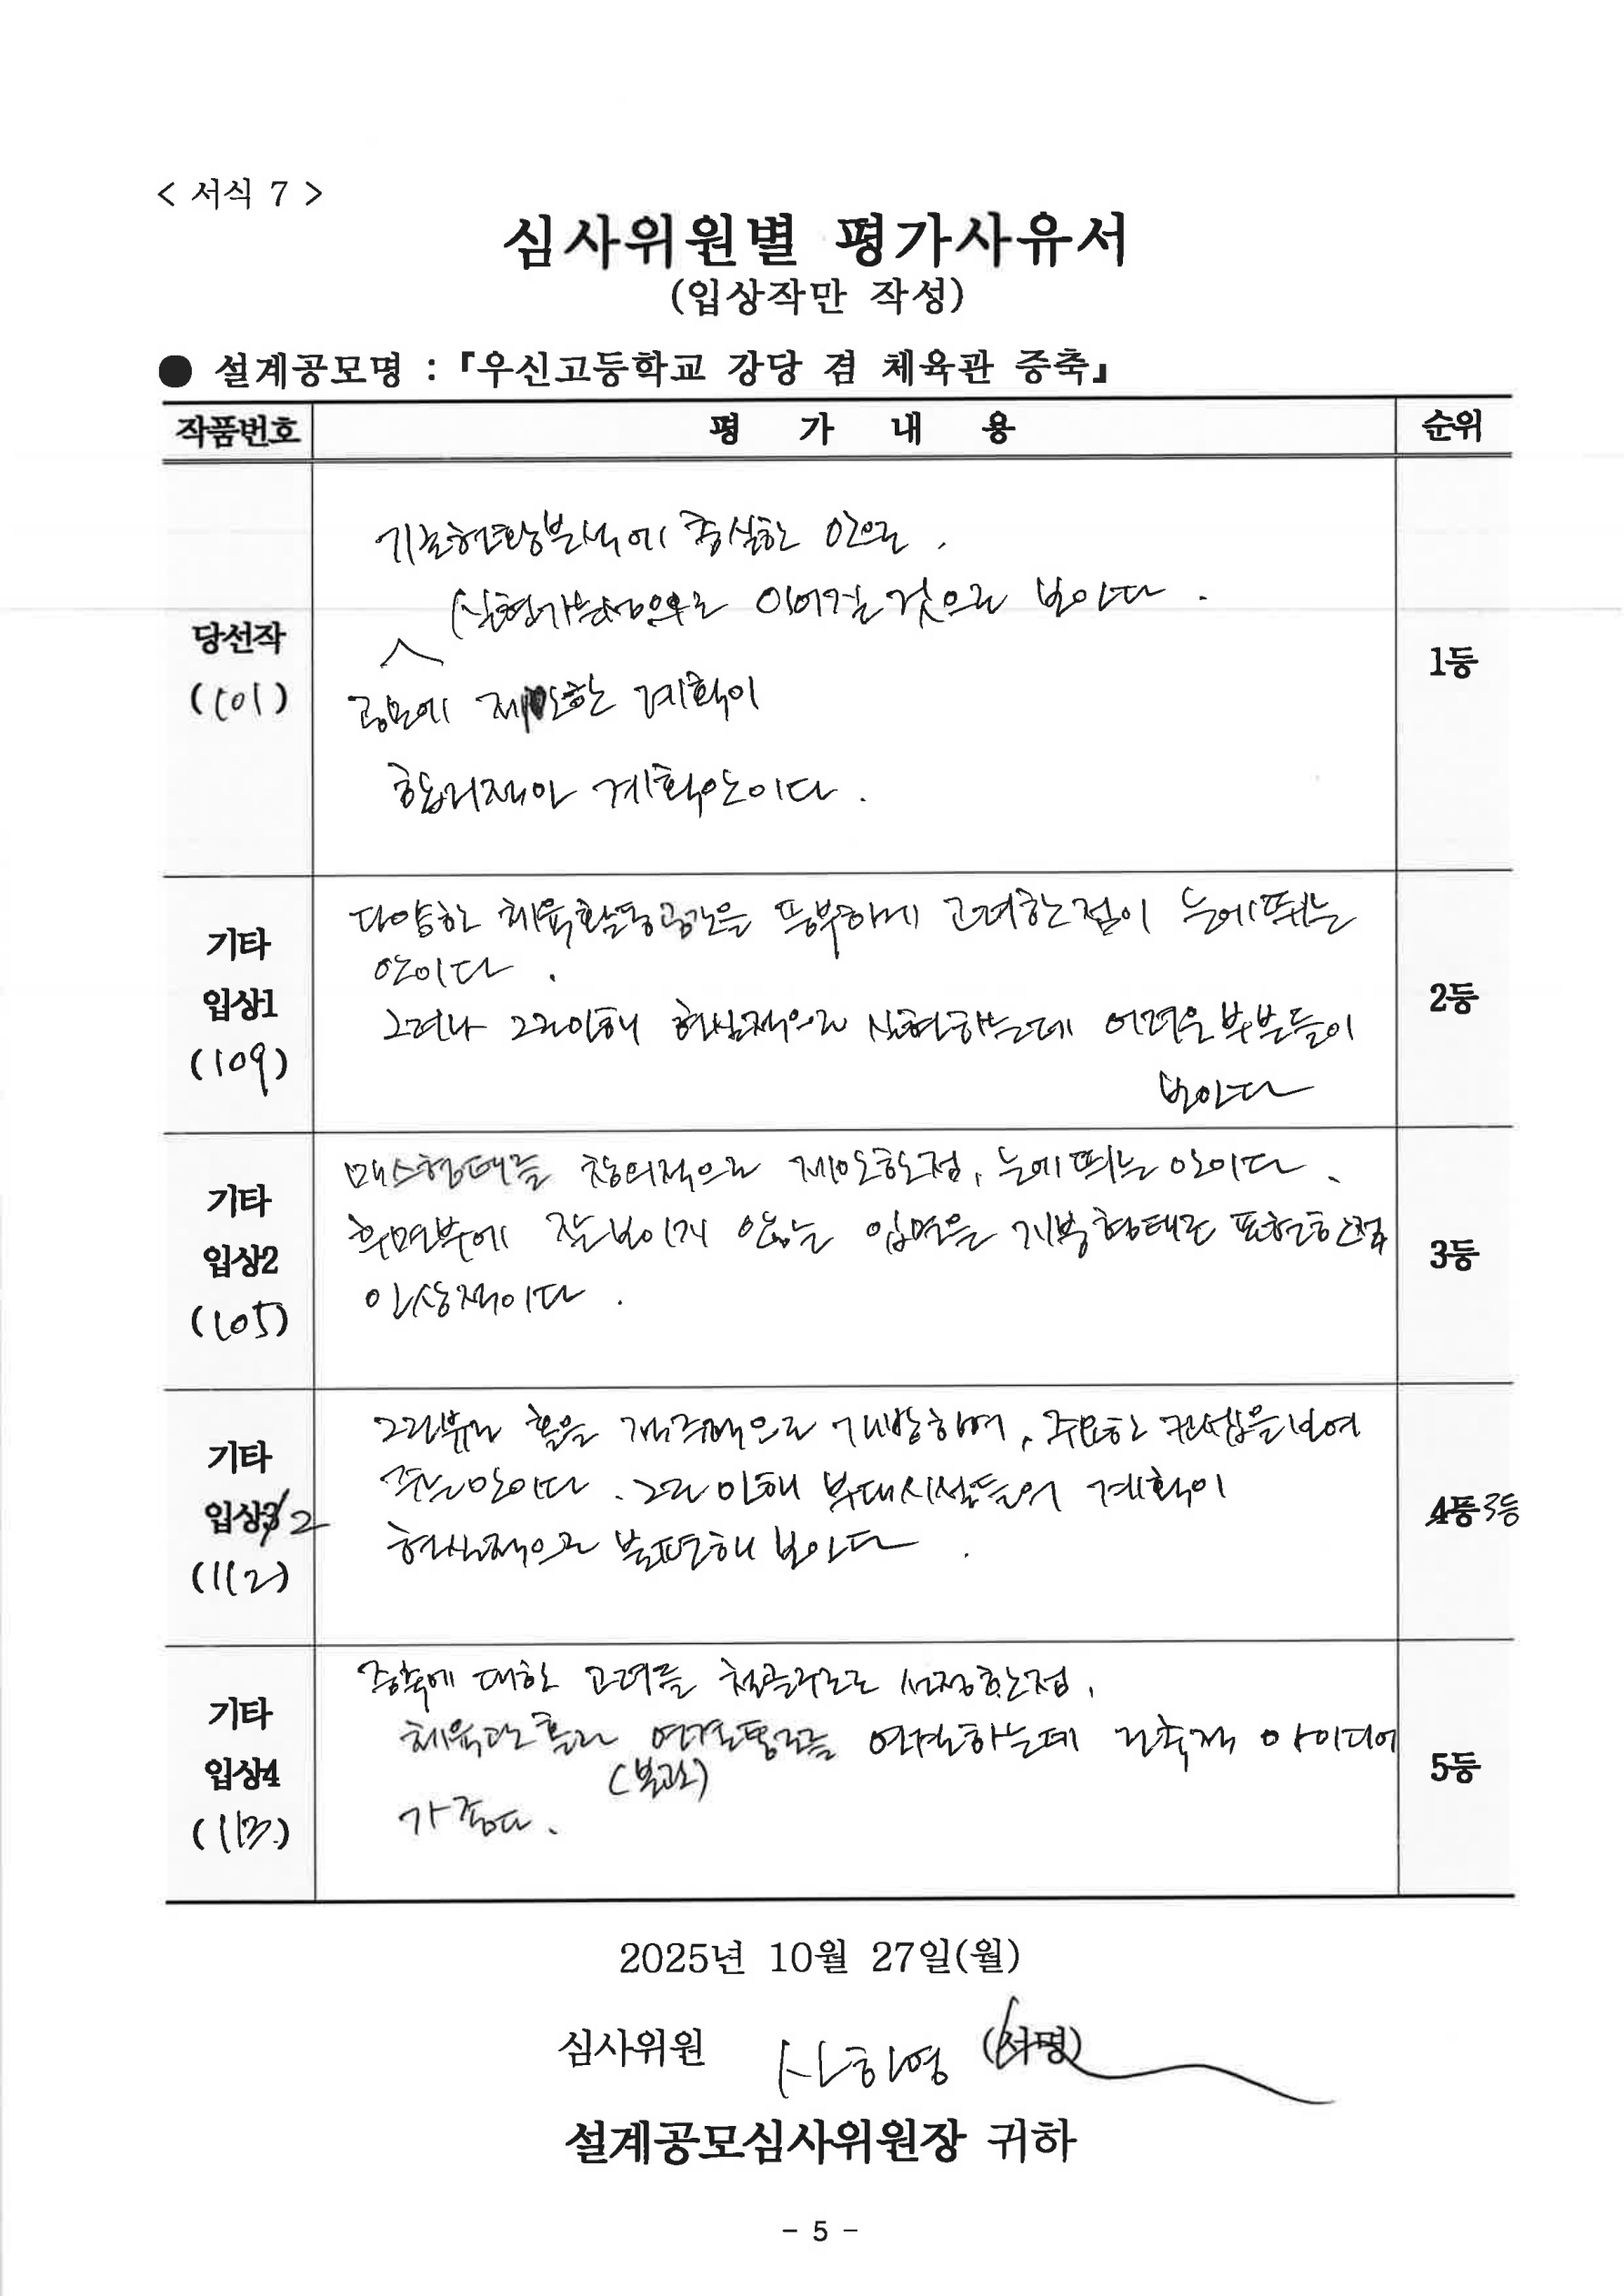 < 서식 7 >
심사위원별 평가사유서
(입상작만 작성)
● 설계공모명 : 『우신고등학교 강당 겸 체육관 증축』
작품번호 평 가 내 용 순위
기존현황분석에 충실한 안으로,
실현가능성으로 이어질 것으로 보인다.
당선작
(101)
1등
공모에 제안한 계획이
합리적인 계획안이다.
다양한 체육활동공간을 풍부하게 고려한점이 눈에띄는
안이다.
기타
입상1
(109)
2등
그러나 그로인해 현실적으로 실현하는데 어려운 부분들이
보인다
매스형태를 창의적으로 제안한점, 눈에 띄는 안이다.
기타
입상2
(105)
3등
후면부에 잘보이지 않는 입면을 지붕형태로 표현한점
인상적이다.
그라운드 홀을 개방하여, 주요한 관심을보여
주는안이다. 그로 인해 부대시설들의 계획이
기타
입상3 2
(112)
4등 3등
현실적으로 불편해 보인다.
증축에 대한 고려를 철골구조로 선정한점,
체육관홀과 연결통로를 연결하는데 건축적 아이디어
(본관)
가 좋다.
기타
입상4
(113)
5등
2025년 10월 27일(월)
심사위원 신하영 (서명)
설계공모심사위원장 귀하
- 5 -